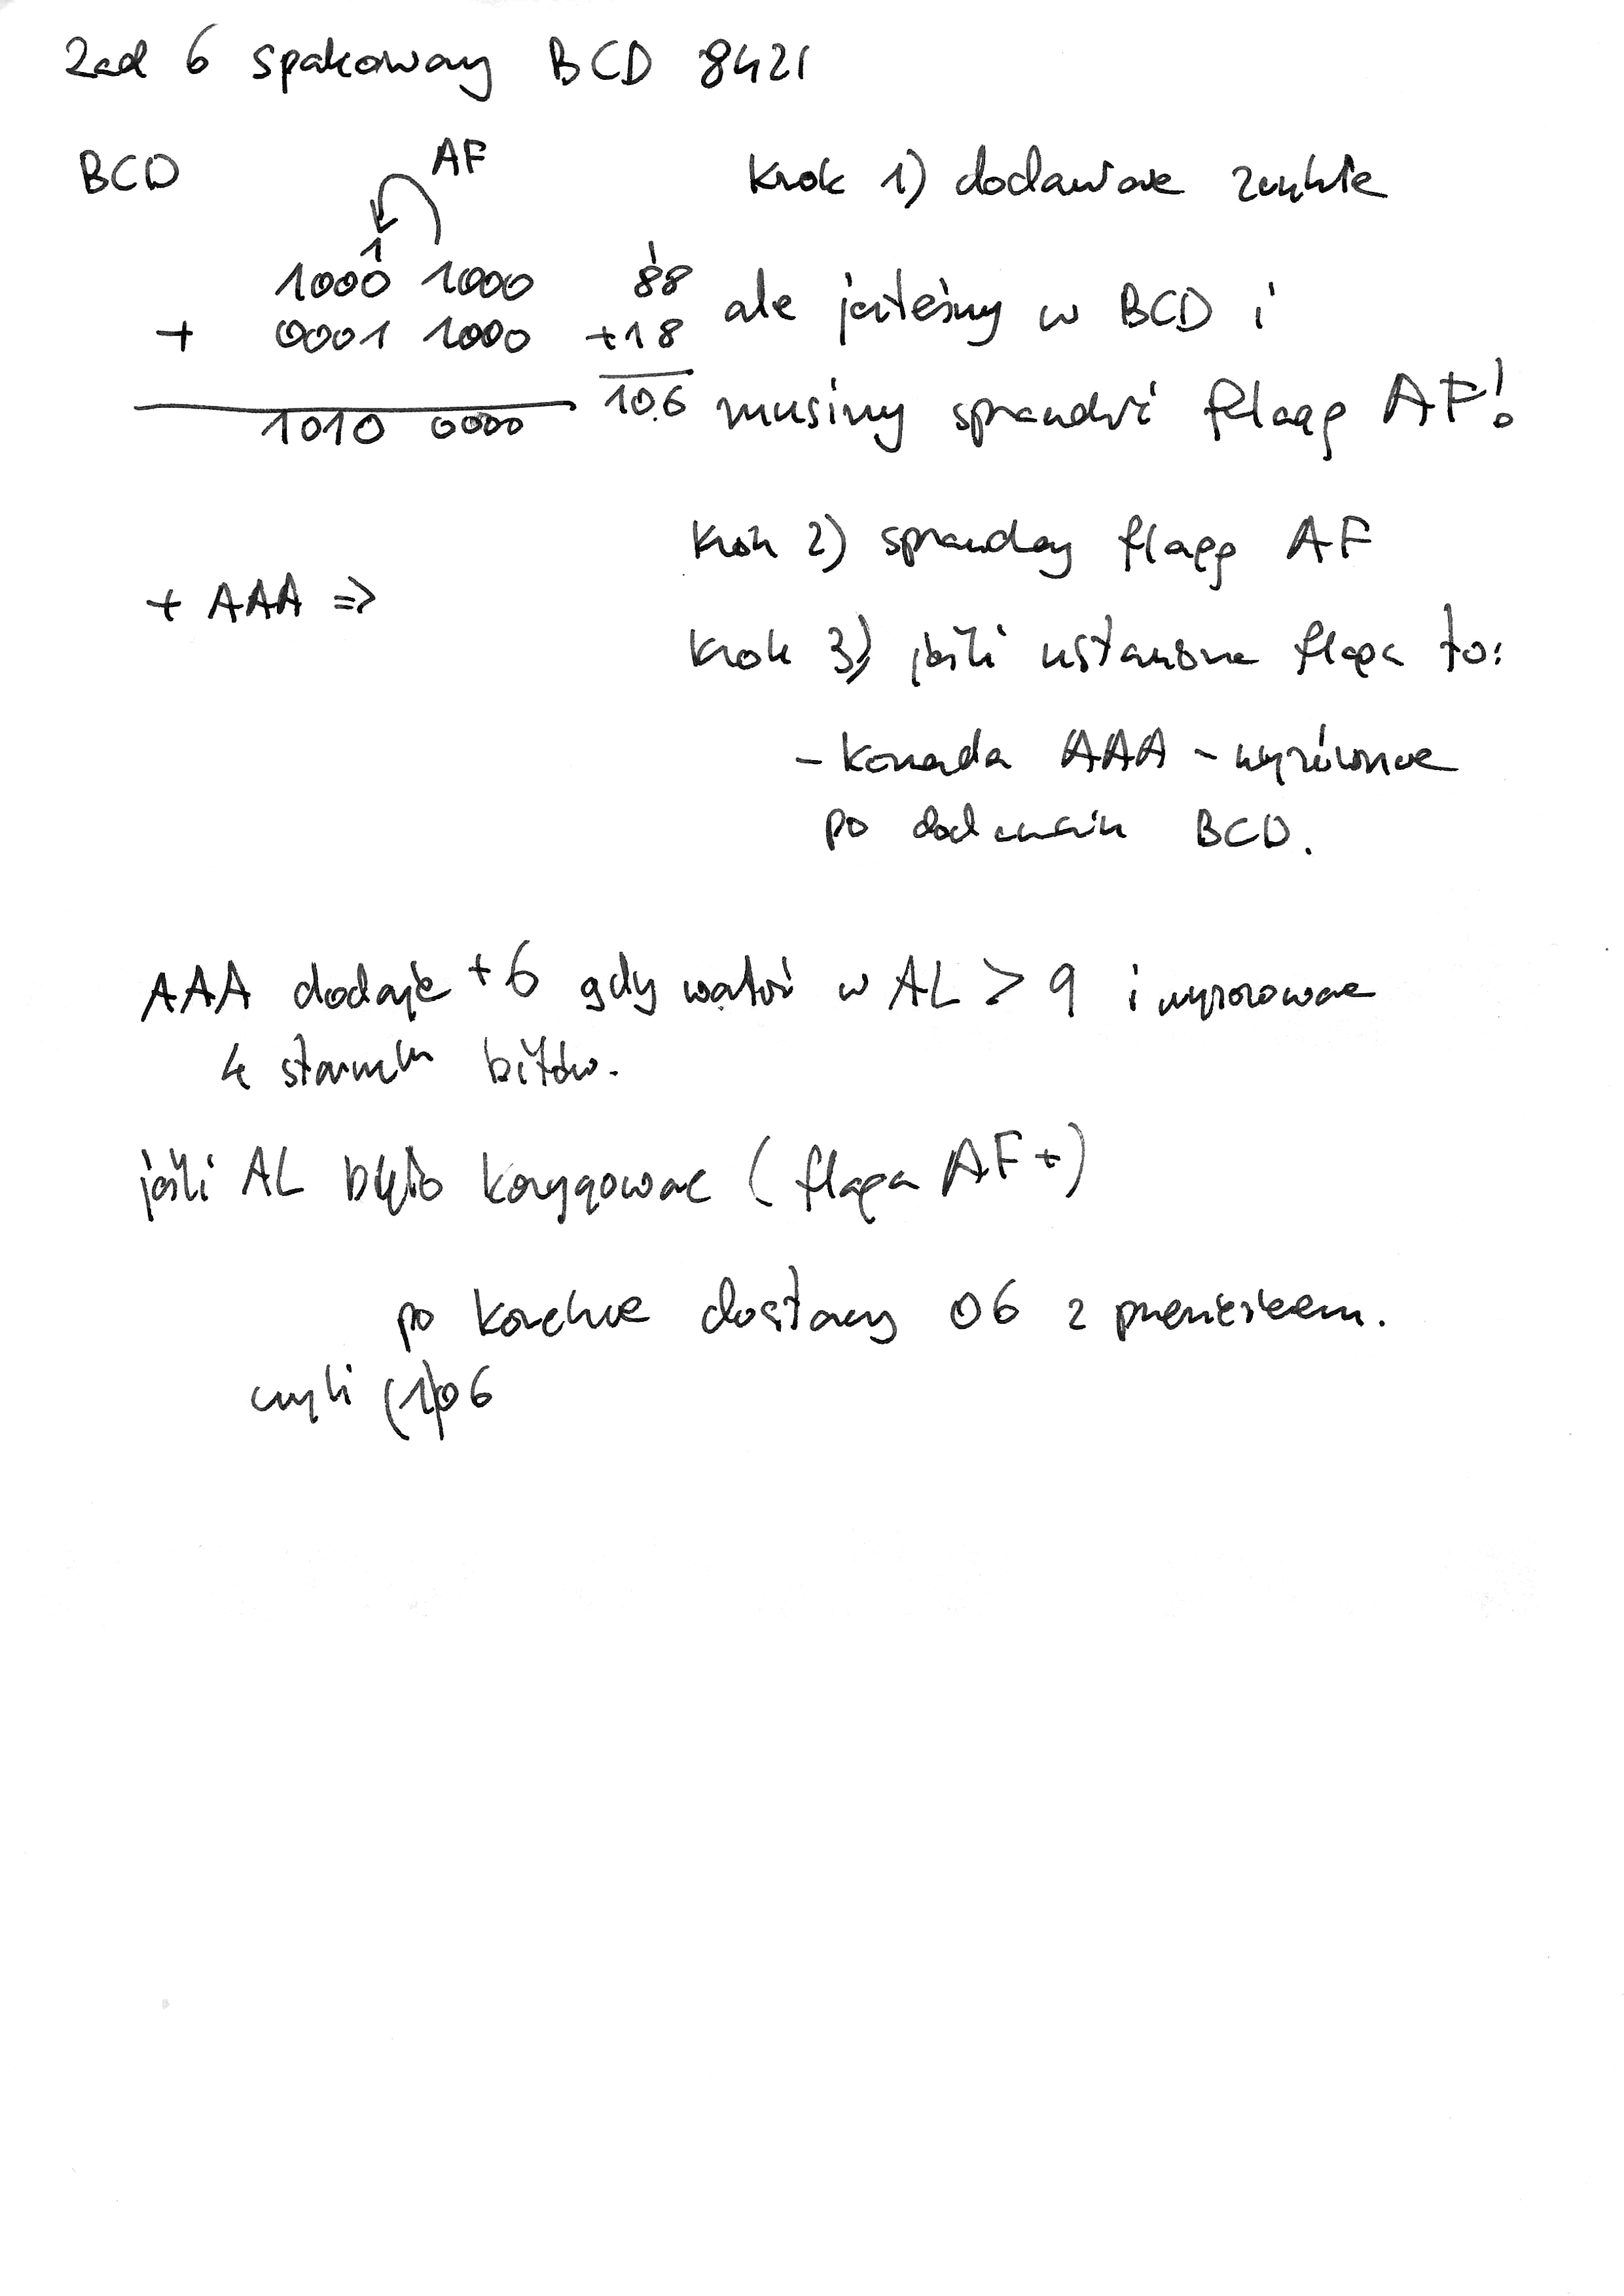 Zad 6 spakowany BCD 8421
BCD AF Krok 1) dodawanie zwykłe
1
1000 1000 88 ale jesteśmy w BCD i
+ 0001 1000 +18
1010 0000 106 musimy sprawdzić flagę AF!
Krok 2) sprawdzamy flagę AF
+ AAA =>
Krok 3) jeśli ustawiona flaga to:
- komenda AAA - wyrównanie
po dodawaniu BCD.
AAA dodaje +6 gdy wartość w AL > 9 i wyzerowanie
4 starszych bitów.
jeśli AL było korygowane (flaga AF+)
po korekcie dostajemy 06 z przeniesieniem.
czyli (1)06